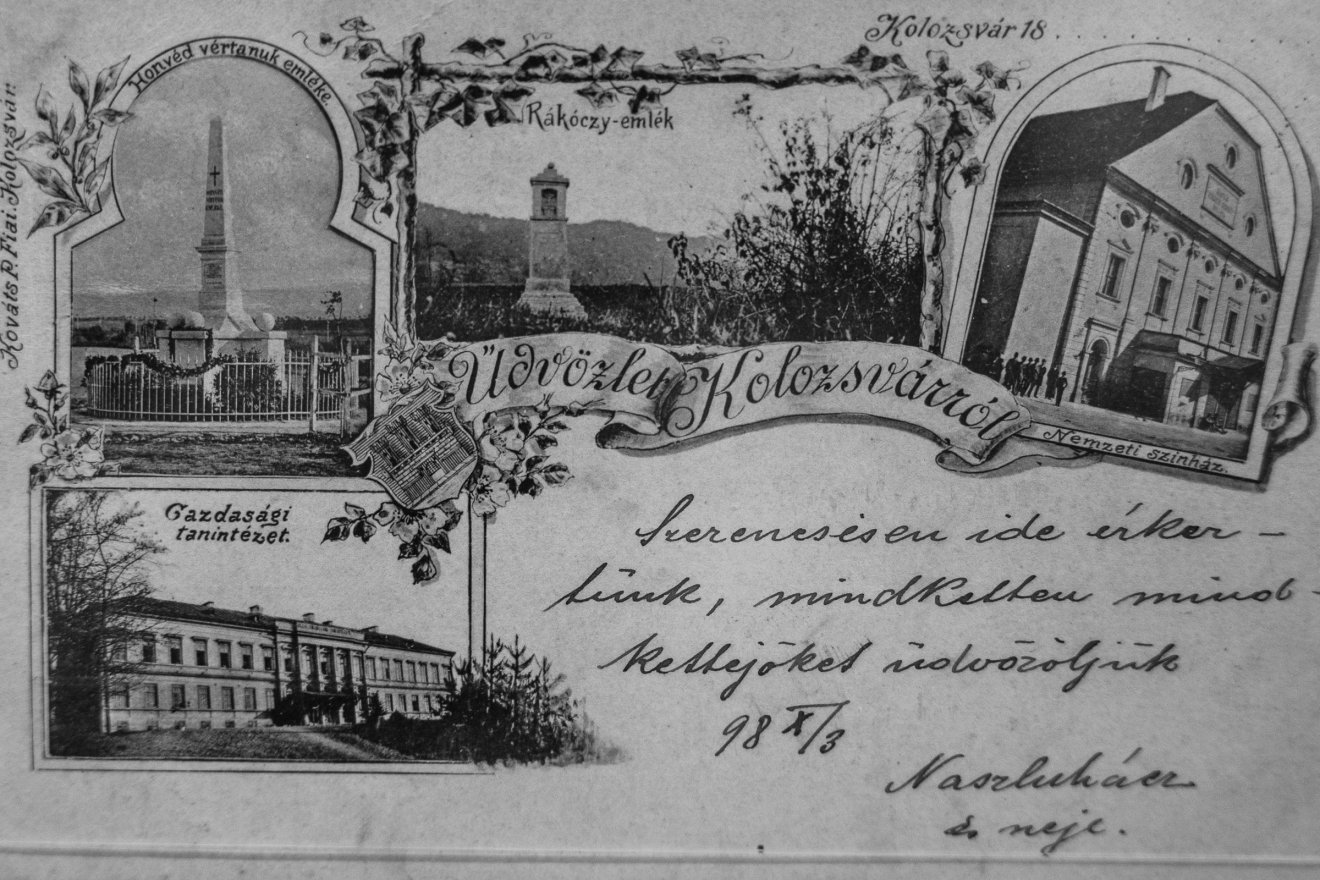 Kolozsvár 18. . . . . . . . .
Kováts P. Fiai. Kolozsvár.
Honvéd vértanuk emléke.
Rákóczy-emlék
Üdvözlet Kolozsvárról
Nemzeti szinház.
Gazdasági
tanintézet.
Szerencsésen ide érker-
tünk, mindketten mind-
kettejőket üdvözöljük
98 X/3
és neje.